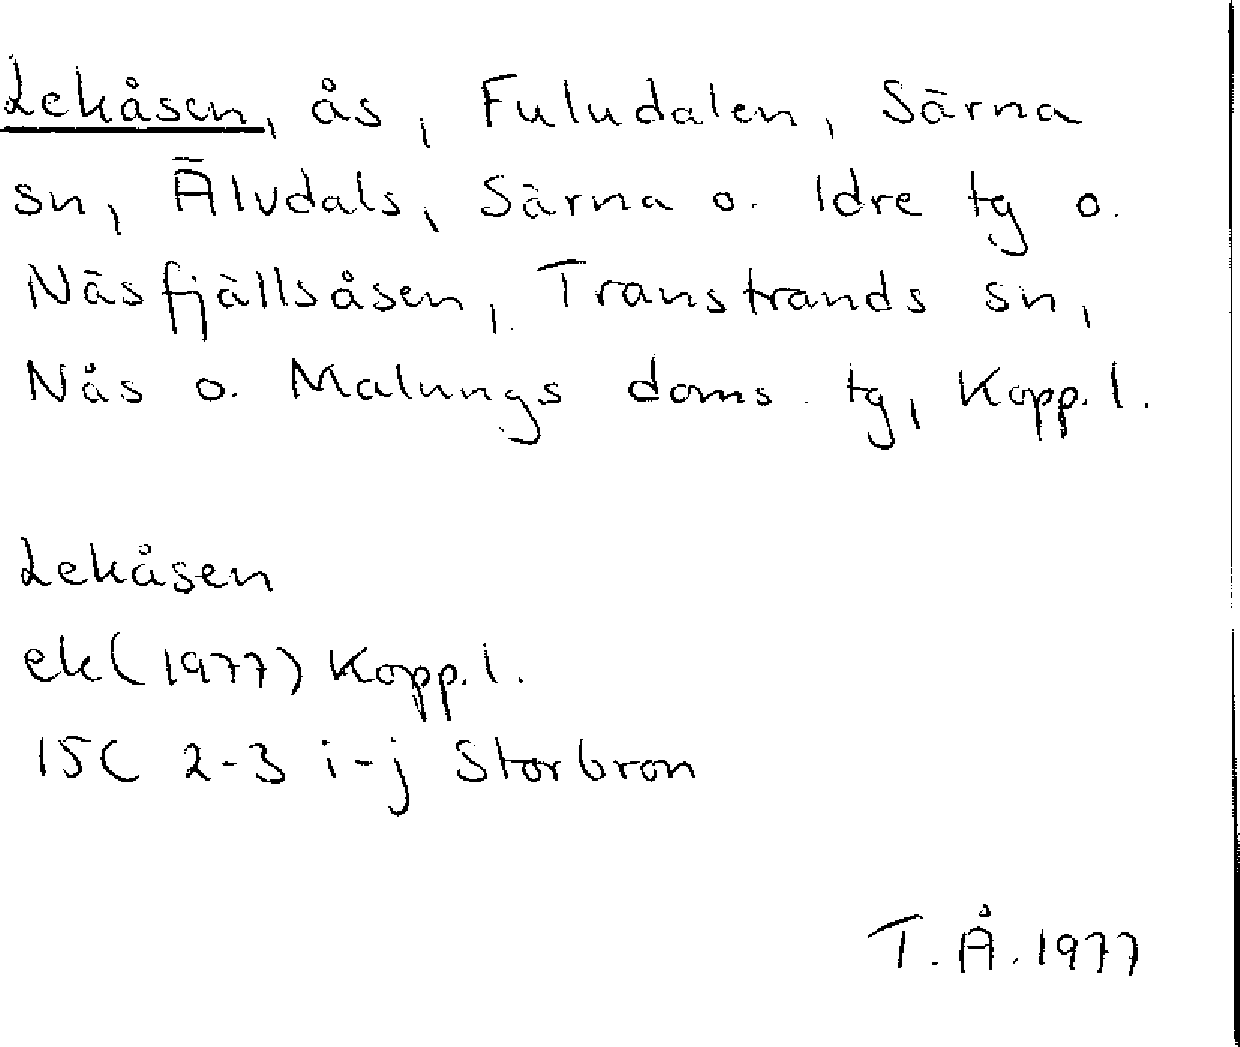 Lekåsen, ås, Fuludalen, Särna
sn, Älvdals, Särna o. Idre tg o.
Näsfjällsåsen, Transtrands sn,
Nås o. Malungs doms. tg, Kopp. l.
Lekåsen
ek (1977) Kopp. l.
15C 2-3 i-j Storbron
T. Å. 1977